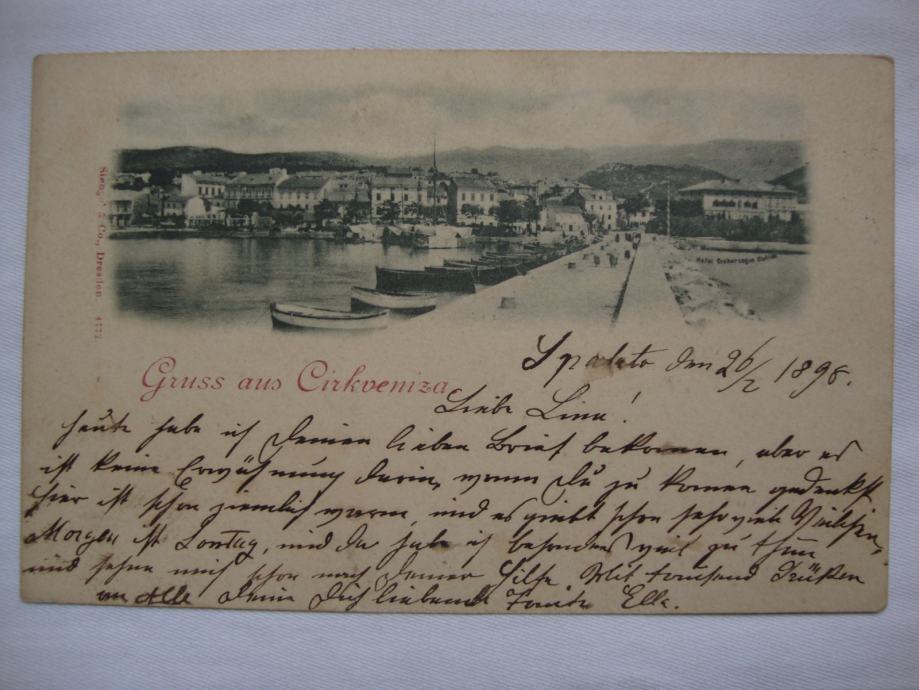 Hotel Erzherzogin Clotilde
Stengel & Co., Dresden 4772
Gruss aus Cirkveniza
Spalato den 26/2 1898.
Liebe Lina!
heute habe ich Deinen lieben Brief bekommen, aber es
ist keine Erwähnung darin, wann Du zu komen gedenkst
hier ist schon ziemlich warm, und es giebt schon sehr viele Veilchen,
Morgen ist Sontag, und da habe ich besonders viel zu thun
und sehne mich schon nach Deiner Hilfe. Mit tausend Grüßen
an Alle Deine Dich liebende Tante Ella.